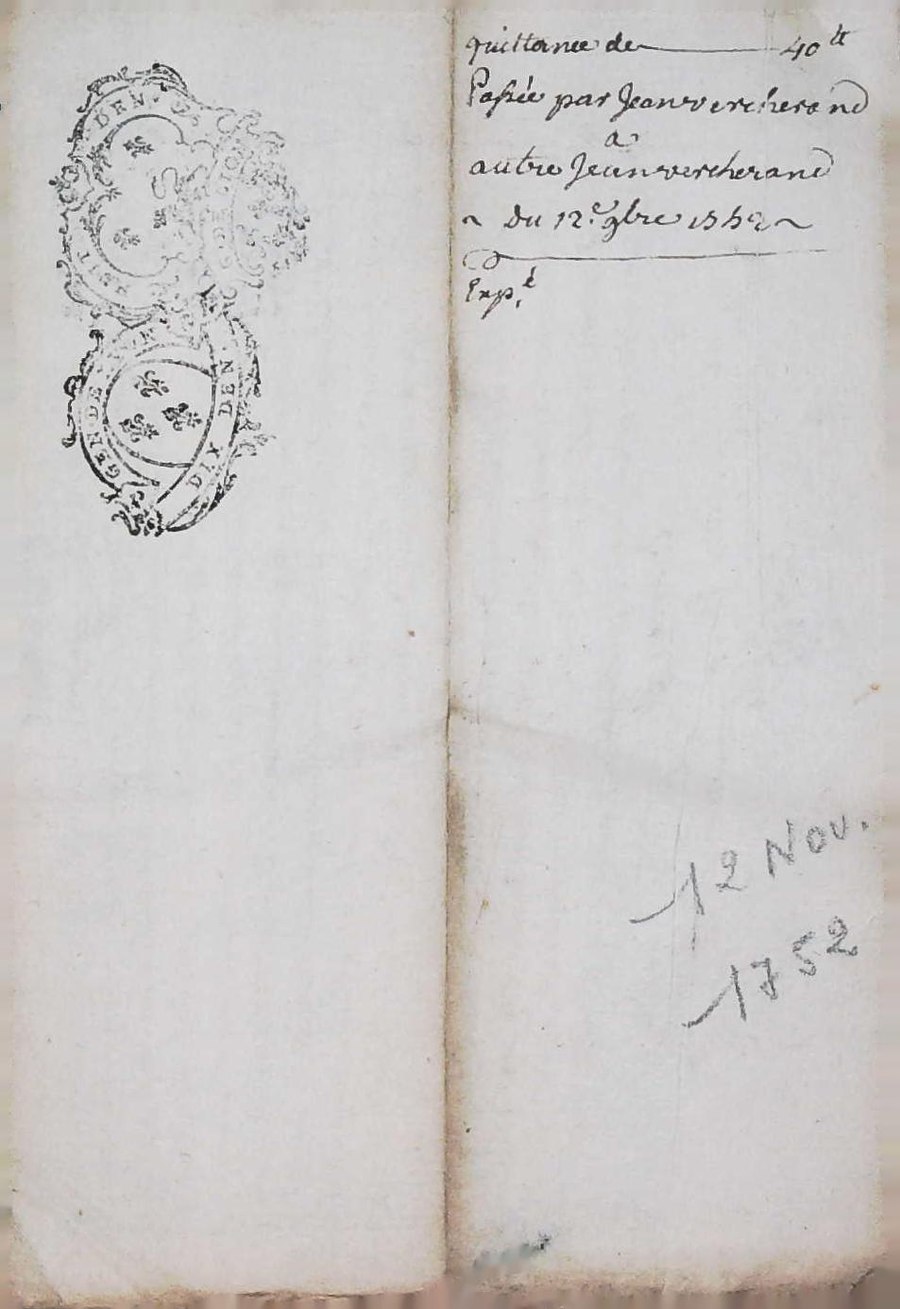 DEN.
HUIT
GEN DE
DIX DEN
quittance de 40 tt
Passée par Jean vercherand
a
autre Jean vercherand
~ Du 12.e 9bre 1752 ~
Exp.é
12 Nov.
1752